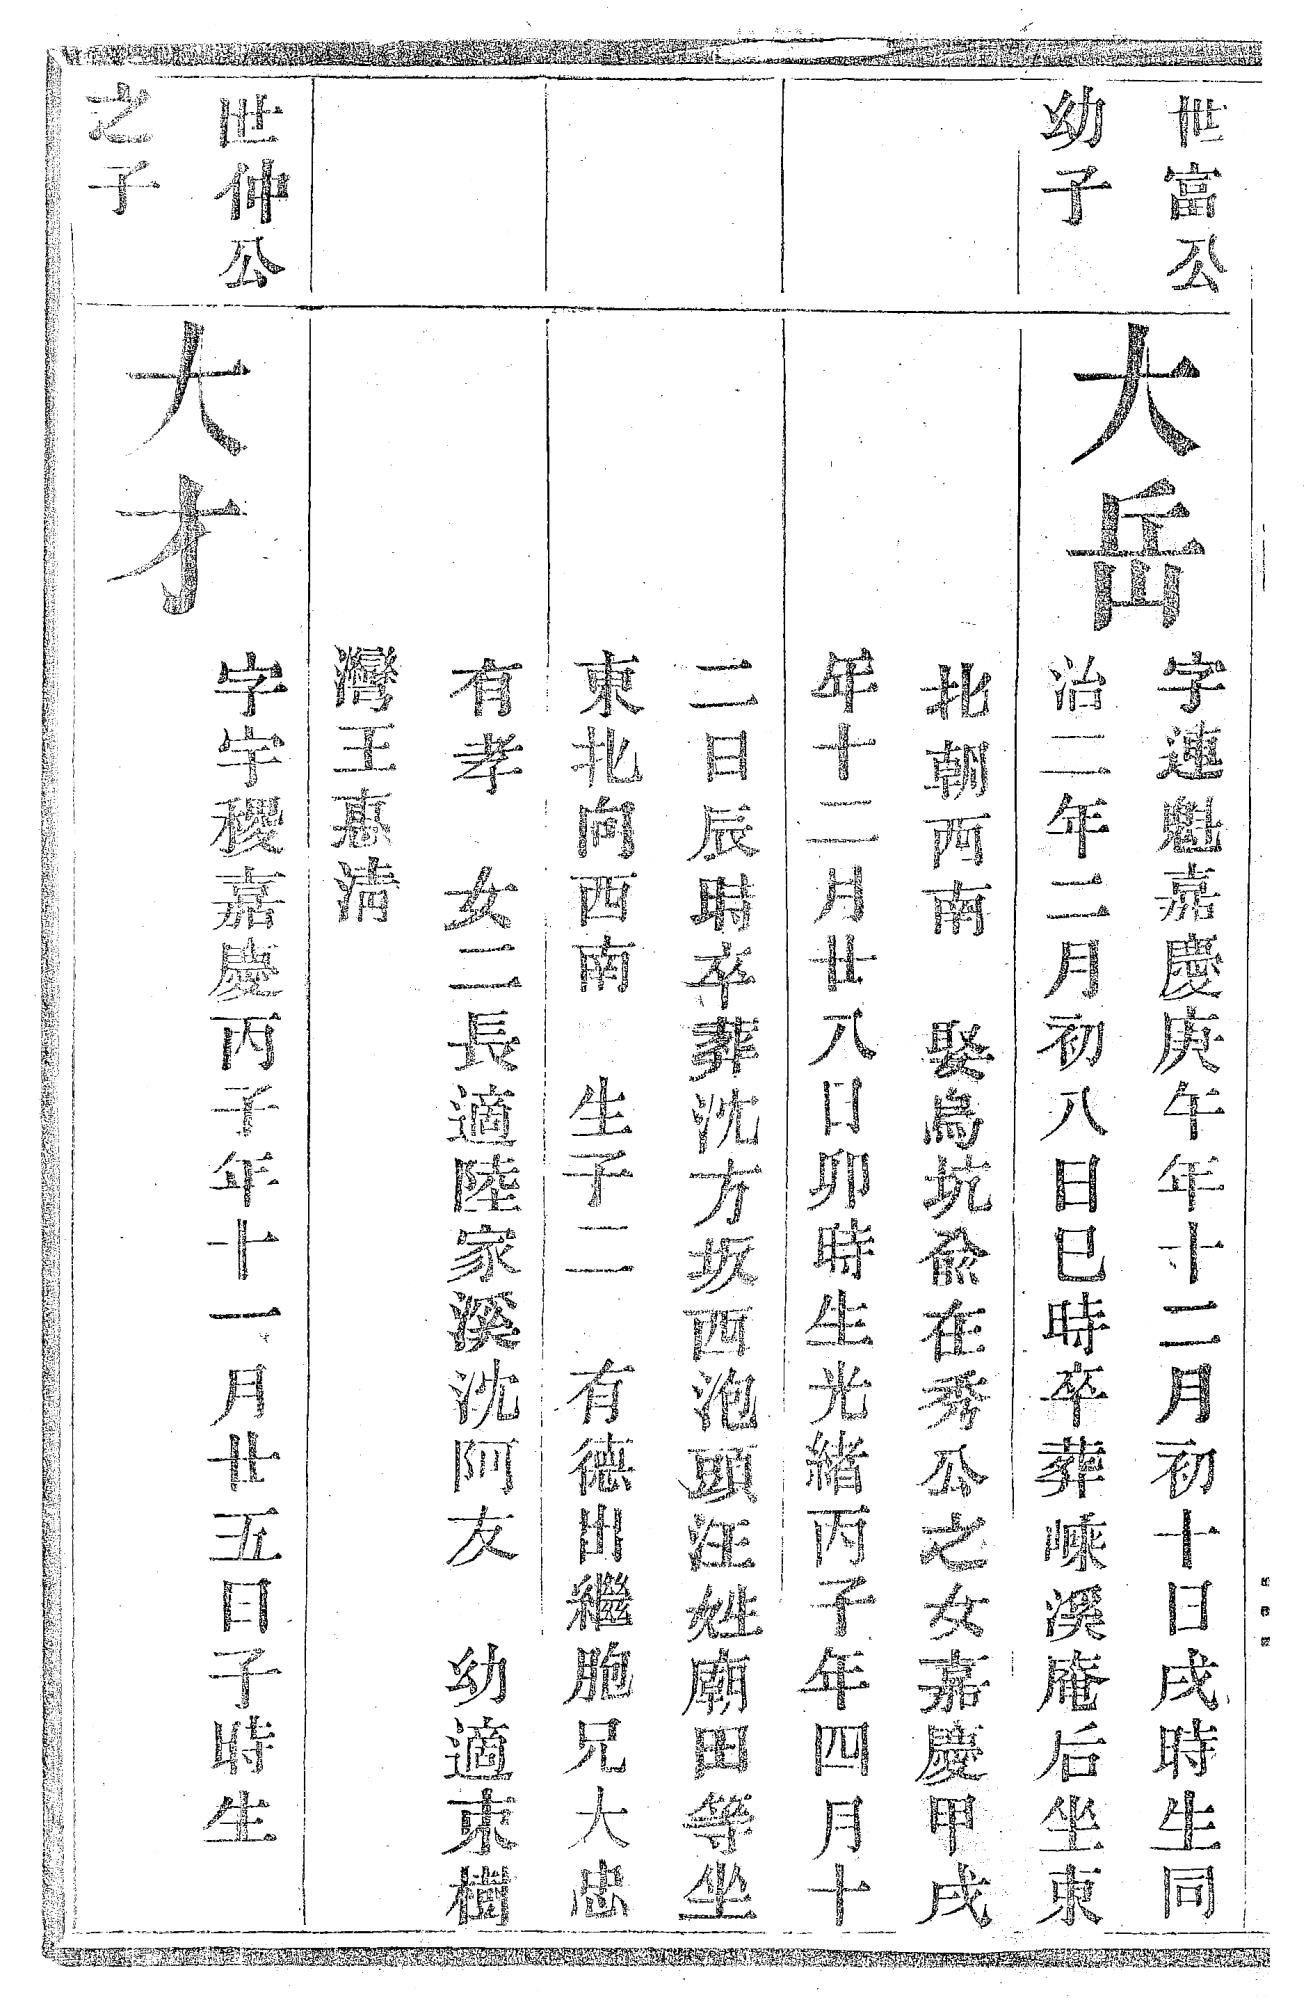 世富公
幼子
大岳
字連魁嘉慶庚午年十二月初十日戌時生同
治二年二月初八日巳時卒葬嵊溪庵后坐東
北朝西南　娶烏坑俞在秀公之女嘉慶甲戌
年十二月廿八日卯時生光緒丙子年四月十
二日辰時卒葬沈方坂西泡頭汪姓廟田等坐
東北向西南　生子二　有德出繼胞兄大忠
有孝　女二長適陸家溪沈阿友　幼適東樹
灣王惠清
世仲公
之子
大才
字宇稷嘉慶丙子年十一月廿五日子時生